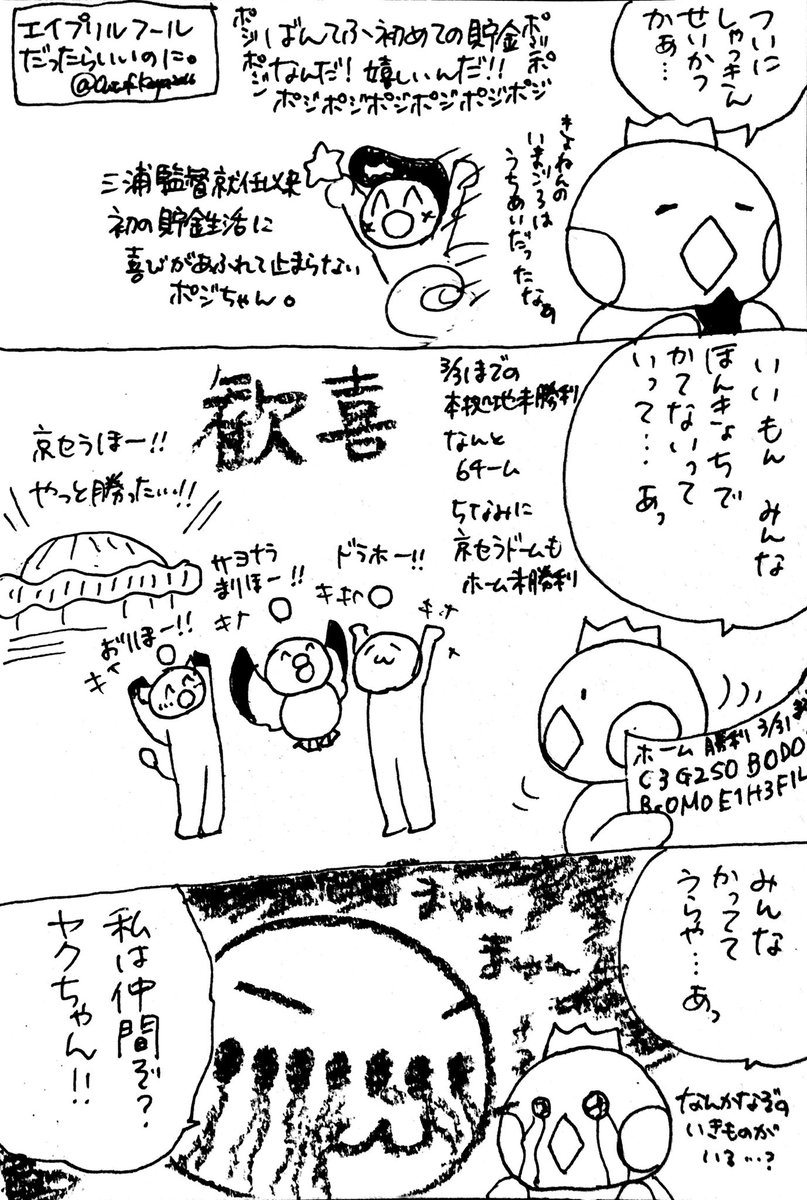 エイプリルフール
だったらいいのに。
ついに
しゃっきん
せいかつ
かぁ…
ポジばんてふ初めての貯金ポジポジ
なんだ!嬉しいんだ!!
ポジポジポジポジポジポジ
きょねんの
いまごろは
うちあいだったなぁ
三浦監督就任以来
初の貯金生活に
喜びがあふれて止まらない
ポジちゃん。
いいもん みんな
ほんきょちで
かてないって
いって…あっ
3/31までの
本拠地未勝利
なんと
6チーム
ちなみに
京セラドームも
ホーム未勝利
歓喜
京セラほー!!
やっと勝ったいい!!
ドラホー!!
キャ
キャッ
サヨナラ
まりほー!!
キャ
おりほー!!
キャ
ホーム勝利 3/31まで
C3 G2 S0 B0 D0
Bs0 M0 E1 H3 F1 L
みんな
かってて
うらや…あっ
まゃん
まゃ〜
私は仲間ぞ?
ヤクちゃん!!
なんかなぞの
いきものが
いる…?